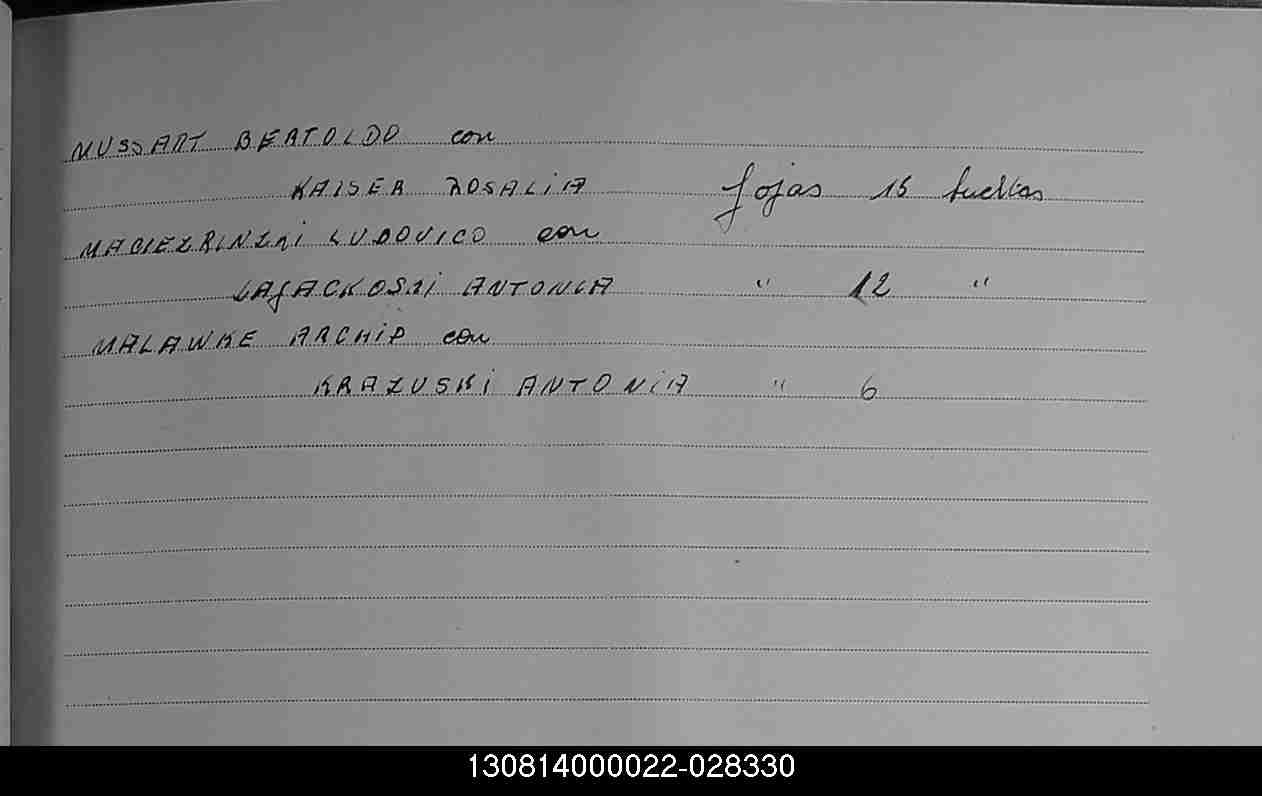 MUSSART BERTOLDO con
KAISER ROSALIA fojas 15 vueltas
LUDOVICO con
ANTONIA " 12 "
MALAWKE ARCHIP con
KRAZUSKI ANTONIA " 6
130814000022-028330